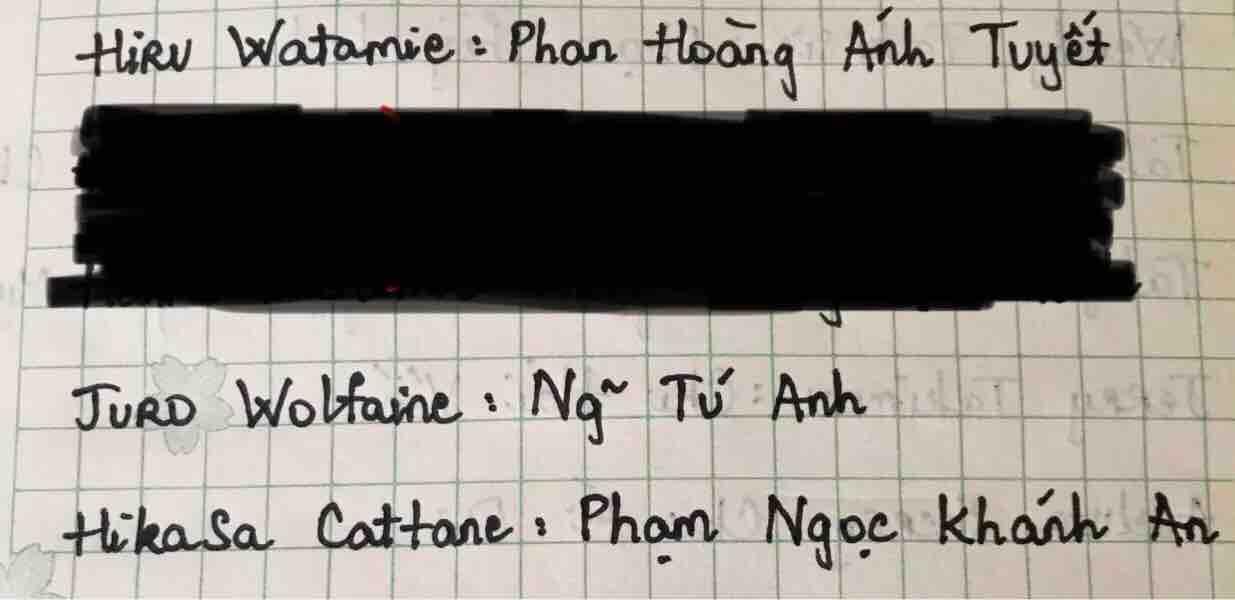 HiRU Watamie : Phan Hoàng Ánh Tuyết
JURD Wolfaine : Ng~ Tú Anh
HikaSa Cattane : Phạm Ngọc Khánh An